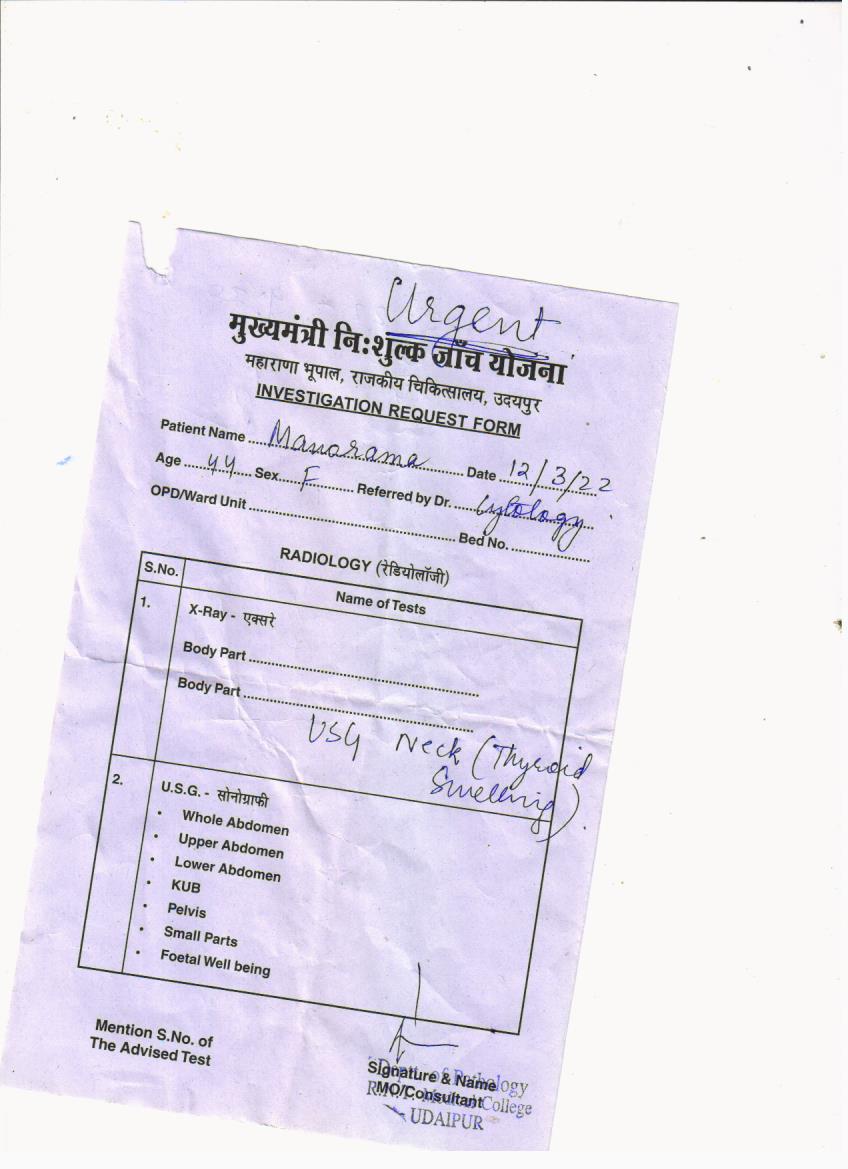 Urgent
मुख्यमंत्री निःशुल्क जाँच योजना
महाराणा भूपाल, राजकीय चिकित्सालय, उदयपुर
INVESTIGATION REQUEST FORM
Patient Name Manorama Date 12/3/22
Age 44 Sex F Referred by Dr. Cytology
OPD/Ward Unit Bed No.
RADIOLOGY (रेडियोलॉजी)
S.No. Name of Tests
1. X-Ray - एक्सरे
Body Part
Body Part
USG Neck (Thyroid
Swelling)
2. U.S.G. - सोनोग्राफी
• Whole Abdomen
• Upper Abdomen
• Lower Abdomen
• KUB
• Pelvis
• Small Parts
• Foetal Well being
Mention S.No. of
The Advised Test
Signature & Name
MO/Consultant
Dept. of Pathology
Medical College
UDAIPUR